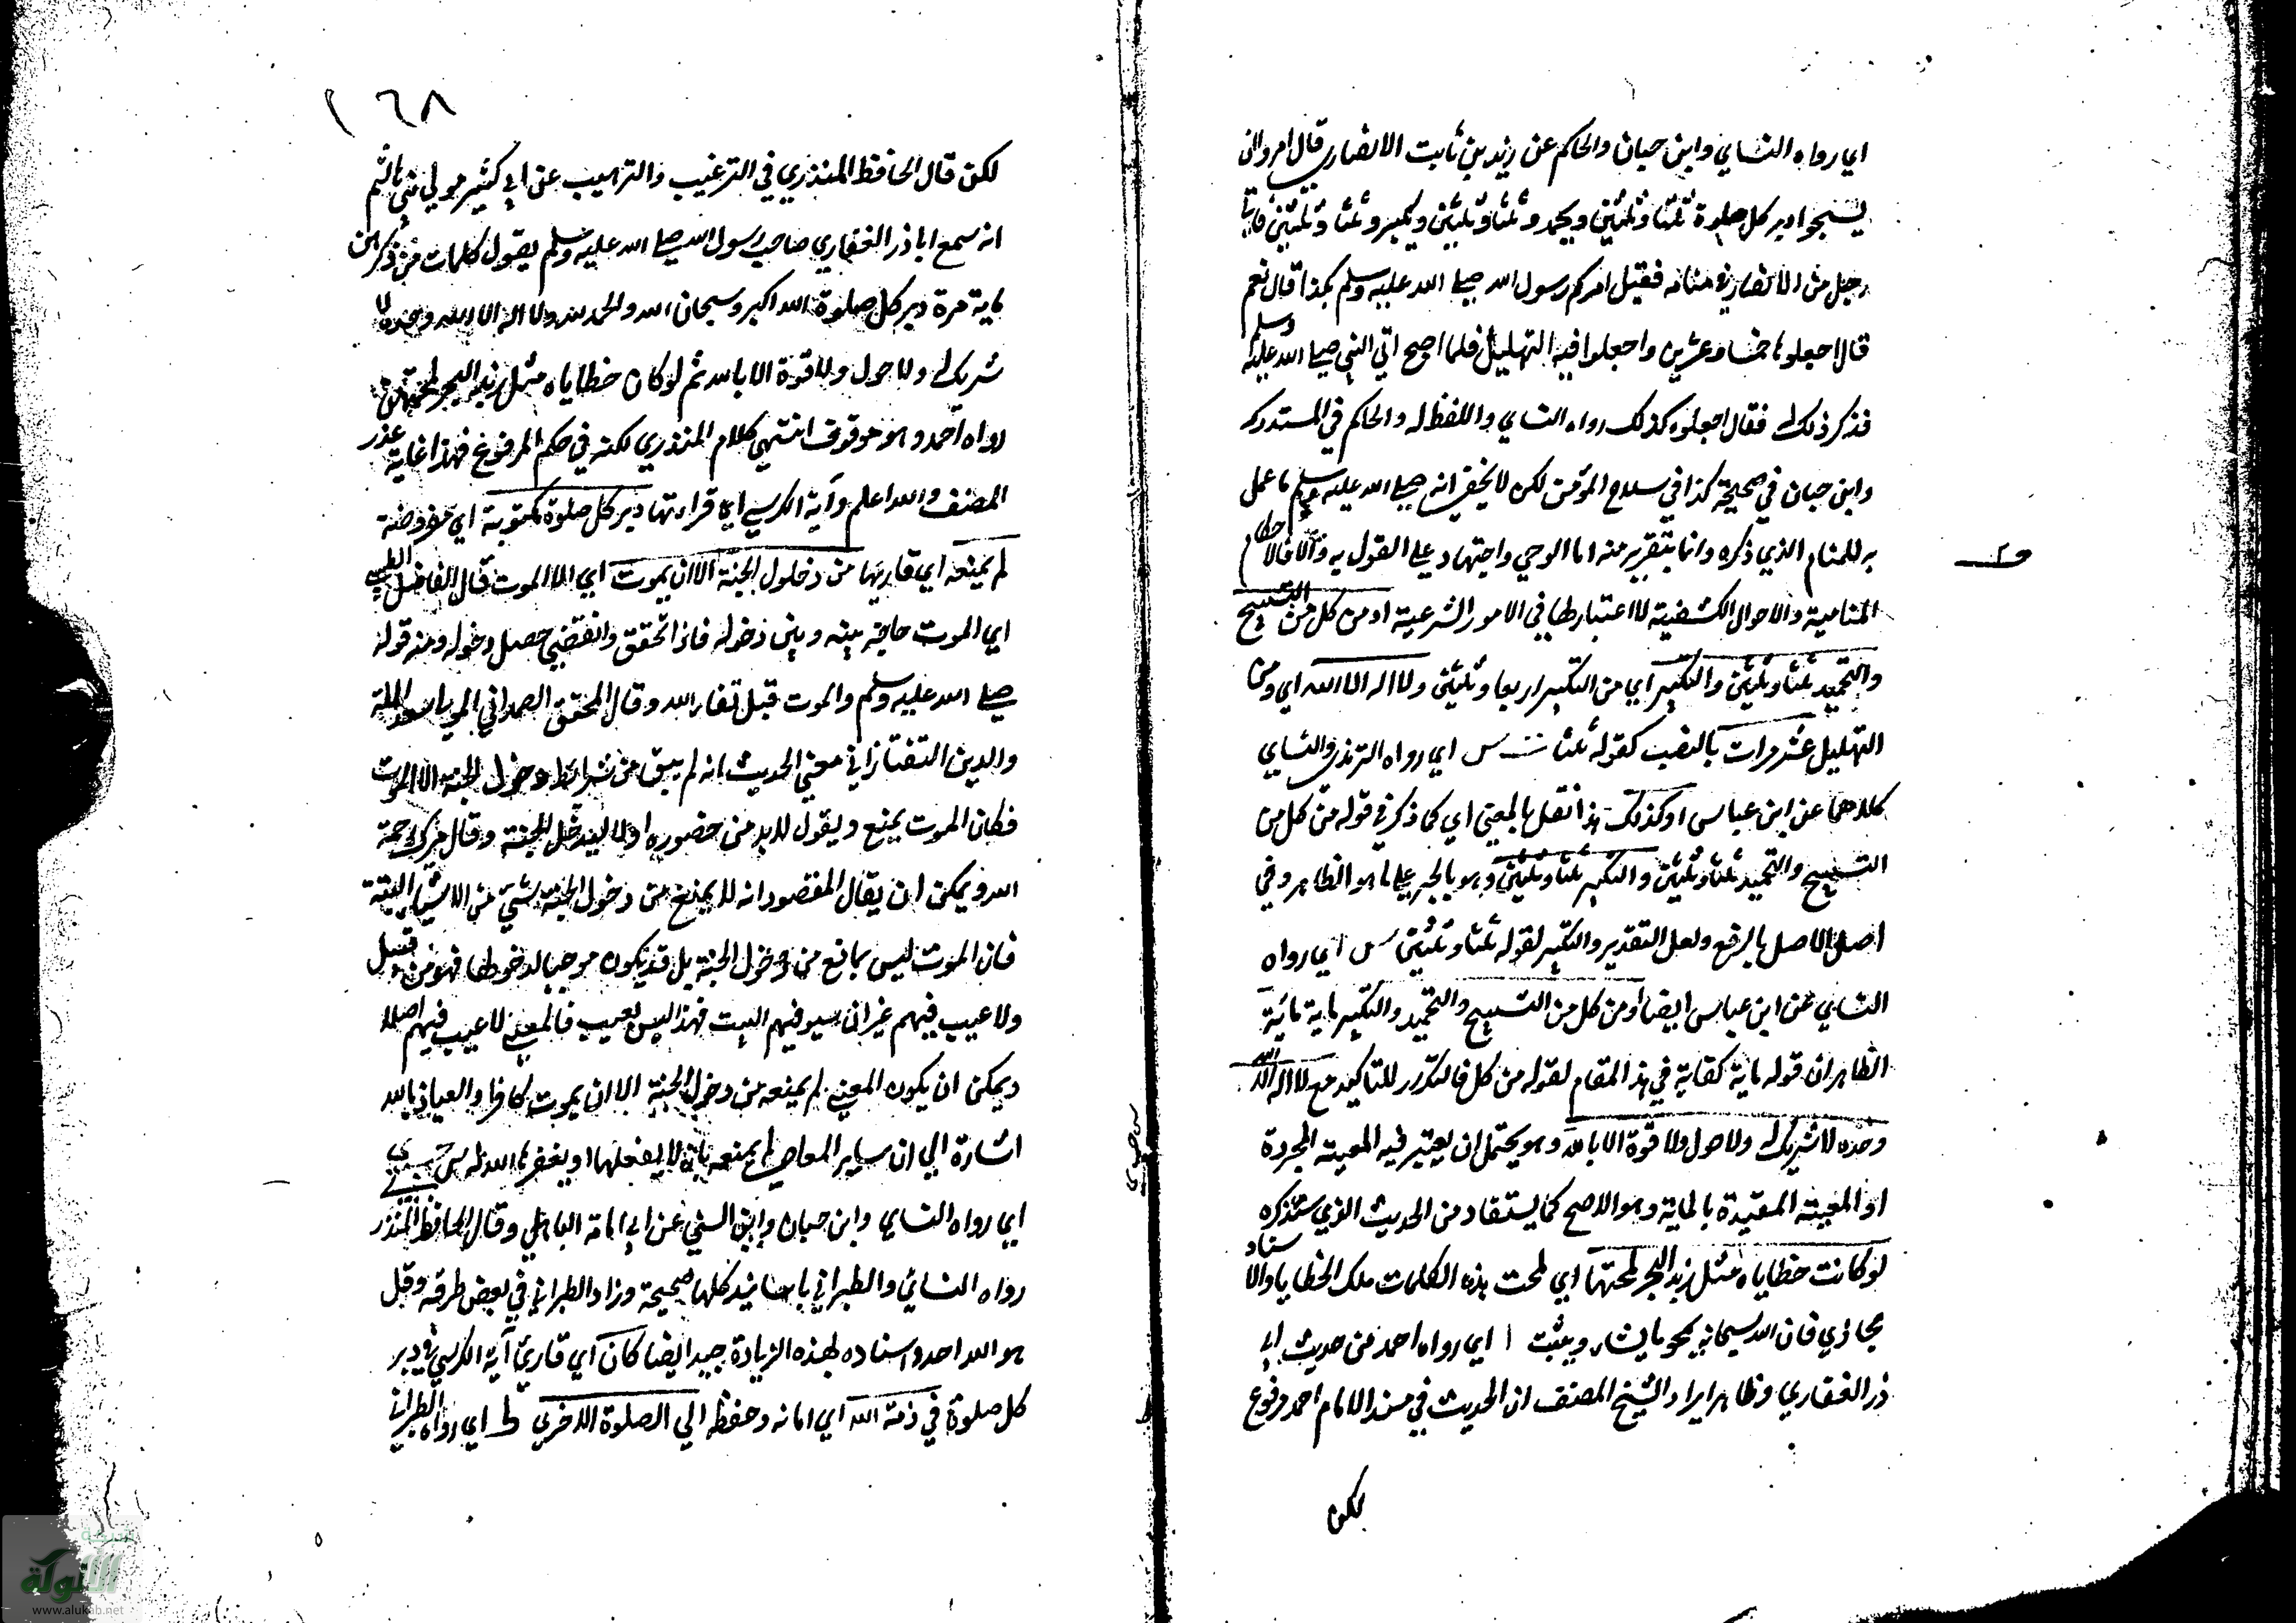 اي رواه النساي وابن حبان والحاكم عن زيد بن ثابت الانصاري قال امروا ان
يسبحوا دبر كل صلوة ثلثا وثلثين ويحمدو ثلثا وثلثين ويكبرو ثلثا وثلثين فاتي
رجل من الانصار في منامه فقيل امركم رسول الله صلى الله عليه وسلم بكذا قال نعم
قال اجعلوها خمسا وعشرين واجعلوا فيه التهليل فلما اصبح اتى النبي صلى الله عليه وسلم
فذكر ذلك له فقال اجعلوه كذلك رواه النساي واللفظ له والحاكم في المستدرك
وابن حبان في صحيحه كذا في سلاح المؤمن لكن لا يخفى انه صلى الله عليه وسلم ما عمل
به للمنام الذي ذكره وانما بتقرير منه اما الوحي واجتهاد على القول به والا فالاحكام
المنامية والاحوال الكشفية لا اعتبار لها في الامور الشرعية او من كل من التسبيح
والتحميد ثلثا وثلثين والتكبير اي من التكبير اربعا وثلثين ولا اله الا الله اي ومن
التهليل عشر مرات بالنصب كقوله ثلثا ت س اي رواه الترمذي والنساي
كلاهما عن ابن عباس او كذلك هذا نقل بالمعنى اي كما ذكر في قوله من كل من
التسبيح والتحميد ثلثا وثلثين والتكبير ثلثا وثلثين وهو بالجر على ما هو الظاهر وفي
اصل الاصل بالرفع ولعل التقدير والتكبير لقوله ثلثا وثلثين س اي رواه
النساي عن ابن عباس ايضا او من كل من التسبيح والتحميد والتكبير ماية مائة
الظاهر ان قوله ماية كفاية في هذا المقام لقوله من كل فالتكرر للتاكيد مع لا اله الا الله
وحده لا شريك له ولا حول ولا قوة الا بالله وهو يحتمل ان يعتبر فيه المعية المجردة
او المعية المقيدة بالماية وهو الاصح كما يستفاد من الحديث الذي سنذكره
لو كانت خطاياه مثل زبد البحر لمحتها اي لمحت هذه الكلمات ملك الخطايا والاسناد
مجازي فان الله سبحانه يمحو ما يشاء ويثبت ا اي رواه احمد من حديث ابي
ذر الغفاري وظاهر ايراد الشيخ المصنف ان الحديث في مسند الامام احمد مرفوع
لكن
١٦٨
لكن قال الحافظ المنذري في الترغيب والترهيب عن ابي كثير مولى بني هاشم
انه سمع ابا ذر الغفاري صاحب رسول الله صلى الله عليه وسلم يقول كلمات من ذكرهن
ماية مرة دبر كل صلوة الله اكبر وسبحان الله والحمد لله ولا اله الا الله وحده لا
شريك له ولا حول ولا قوة الا بالله ثم لو كان خطاياه مثل زبد البحر لمحتهن
رواه احمد وهو موقوف انتهى كلام المنذري لكنه في حكم المرفوع فهذا غاية عذر
المصنف والله اعلم وآية الكرسي اي قراءتها دبر كل صلوة مكتوبة اي مفروضة
لم يمنعه اي قاريها من دخلول الجنة الا ان يموت اي الا الموت قال الفاضل الطيبي
اي الموت حاجز بينه وبين دخوله فاذا تحقق وانقضى حصل دخوله ومنه قوله
صلى الله عليه وسلم والموت قبل لقاء الله وقال المحقق الصمداني المولى سعد الملة
والدين التفتازاني معنى الحديث انه لم يبق من شرائط دخول الجنة الا الموت
فكان الموت يمنع ويقول لا بد من حضوره اولا ليدخل الجنة وقال ميرك رحمة
الله ويمكن ان يقال المقصود انه لا يمنع من دخول الجنة شيء من الاشياء البتة
فان الموت ليس بمانع من دخول الجنة بل قد يكون موجبا لدخولها فهو من قبيل
ولا عيب فيهم غير ان سيوفهم البيت فهذا ليس بعيب فالمعنى لا عيب فيهم اصلا
ويمكن ان يكون المعنى لم يمنعه من دخول الجنة الا ان يموت كافرا والعياذ بالله
اشارة الى ان ساير المعاصي لم يمنعه بانه لا يفعلها او يغفرها الله له س حب ي
اي رواه النساي وابن حبان وابن السني عن ابي امامة الباهلي وقال الحافظ المنذري
رواه النسائي والطبراني باسانيد كلها صحيحة وزاد الطبراني في بعض طرقه وقل
هو الله احد واسناده لهذه الزيادة جيد ايضا كان اي قارئ آية الكرسي في دبر
كل صلوة في ذمة الله اي امانه وحفظه الى الصلوة الاخرى ط اي رواه الطبراني
www.alukah.net